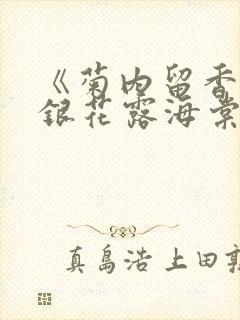 《菊内留香
銀花露海棠
真島浩 上田敦